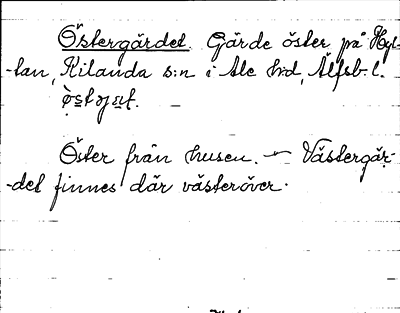 Östergärdet. Gärde öster på Hyl-
-tan, Kilanda s:n i Ale h:d, Älfsb. l.
Öster från husen. – Västergär-
-det finnes där västeröver.